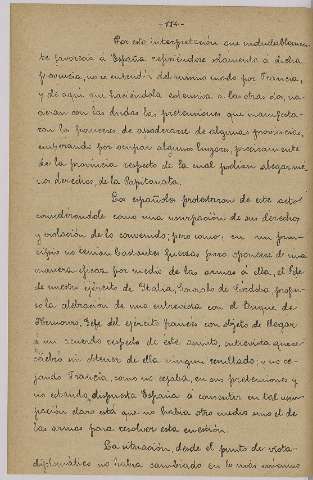 -114-
Por esta interpretación que indudablemen-
te favorecia á España refiriéndose solamente á dicha
provincia, no se entendió del mismo modo por Francia,
y de aqui que haciéndola estensiva á las otras dos, na-
cieran con las dudas las pretensiones que manifesta-
ron los franceses de apoderarse de algunas provincias,
empezando por ocupar algunos lugares, precisamente
de la provincia respecto de la cual podian alegar me-
nos derechos, de la Capitanata.
Los españoles protestaron de este acto
considerándole como una usurpación de sus derechos
y violación de lo convenido; pero como, en un prin-
cipio no tenian bastantes fuerzas para oponerse de una
manera eficaz por medio de las armas á ella, el Gefe
de nuestro ejército de Italia, Gonzalo de Córdoba propu-
so la celebración de una entrevista con el Duque de
Nemours, Gefe del ejército francés con objeto de llegar
á un acuerdo respecto de este asunto, entrevista que se
celebró sin obtener de ella ningun resultado; y no ce-
jando Francia, como no cejaba, en sus pretensiones y
no estando dispuesta España á consentir en tal usur-
pación claro está que no habia otro medio sino el de
las armas para resolver esta cuestión.
La situación, desde el punto de vista
diplomático no habia cambiado en lo más mínimo